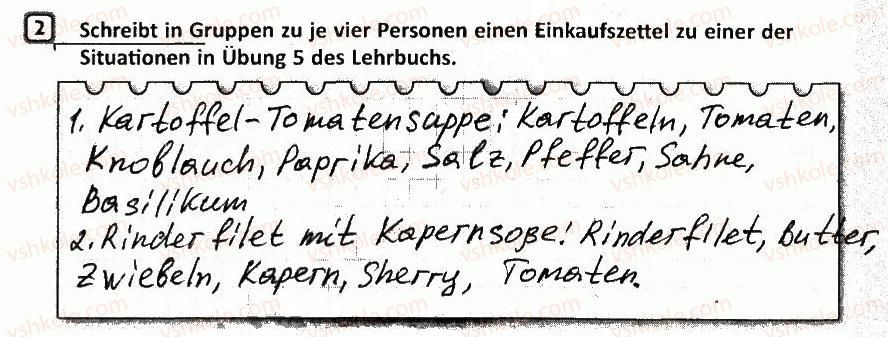 2 Schreibt in Gruppen zu je vier Personen einen Einkaufszettel zu einer der
Situationen in Übung 5 des Lehrbuchs.
1. Kartoffel-Tomatensuppe: Kartoffeln, Tomaten,
Knoblauch, Paprika, Salz, Pfeffer, Sahne,
Basilikum
2. Rinderfilet mit Kapernsoße: Rinderfilet, Butter,
Zwiebeln, Kapern, Sherry, Tomaten.